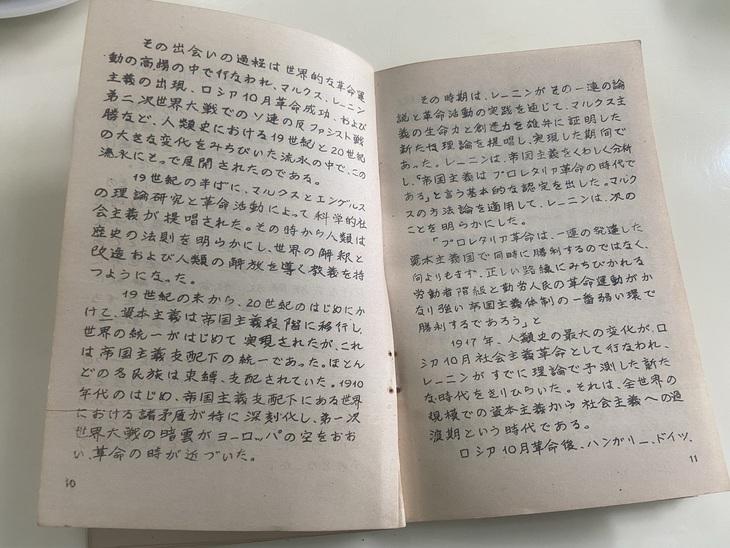 その出会いの過程は世界的な革命運
動の高揚の中で行なわれ、マルクス、レーニン
主義の出現、ロシア10月革命成功、および
第二次世界大戦でのソ連の反ファシスト戦
勝など、人類史における19世紀と20世紀
の大きな変化をみちびいた流氷の中で、この
流氷にそって展開されたのである。
19世紀の半ばに、マルクスとエンゲルス
の理論研究と革命活動によって科学的社
会主義が提唱された。その時から人類は
歴史の法則を明らかにし、世界の解釈と
改造および人類の解放を導く教義を持
つようになった。
19世紀の末から、20世紀のはじめにか
けて、資本主義は帝国主義段階に移行し、
世界の統一がはじめて実現されたが、これ
は帝国主義支配下の統一であった。ほとん
どの各民族は束縛、支配されていた。1910
年代のはじめ、帝国主義支配下にある世界
における諸矛盾が特に深刻化し、第一次
世界大戦の暗雲がヨーロッパの空をおお
い、革命の時が近づいた。
10
その時期は、レーニンがその一連の論
説と革命活動の実践を通じて、マルクス主
義の生命力と創造力を雄弁に証明した
新たな理論を提唱し、実現した期间で
あった。レーニンは、帝国主義をくわしく分析
し、「帝国主義はプロレタリア革命の時代で
ある」と言う基本的な認定を出した。マルク
スの方法論を適用して、レーニンは、次の
ことを明らかにした。
「プロレタリア革命は、一連の発達した
資本主義国で同時に勝利するのではなく、
何よりもまず、正しい路線にみちびかれる
労働者階級と勤労人民の革命運動がか
なり強い帝国主義体制の一番弱い環で
勝利するであろう」と
1917年、人類史の最大の変化が、ロ
シア10月社会主義革命として行なわれ、
レーニンがすでに理論で予測した新た
な時代をきりひらいた。それは、全世界の
規模での資本主義から社会主義への過
渡期という時代である。
ロシア10月革命後、ハンガリー、ドイツ、
11